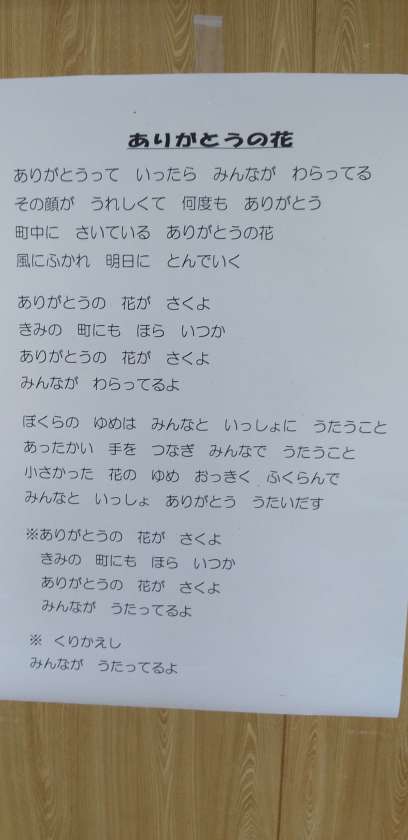 ありがとうの花
ありがとうって　いったら　みんなが　わらってる
その顔が　うれしくて　何度も　ありがとう
町中に　さいている　ありがとうの花
風にふかれ　明日に　とんでいく
ありがとうの　花が　さくよ
きみの　町にも　ほら　いつか
ありがとうの　花が　さくよ
みんなが　わらってるよ
ぼくらの　ゆめは　みんなと　いっしょに　うたうこと
あったかい　手を　つなぎ　みんなで　うたうこと
小さかった　花の　ゆめ　おっきく　ふくらんで
みんなと　いっしょ　ありがとう　うたいだす
※ありがとうの　花が　さくよ
きみの　町にも　ほら　いつか
ありがとうの　花が　さくよ
みんなが　うたってるよ
※　くりかえし
みんなが　うたってるよ